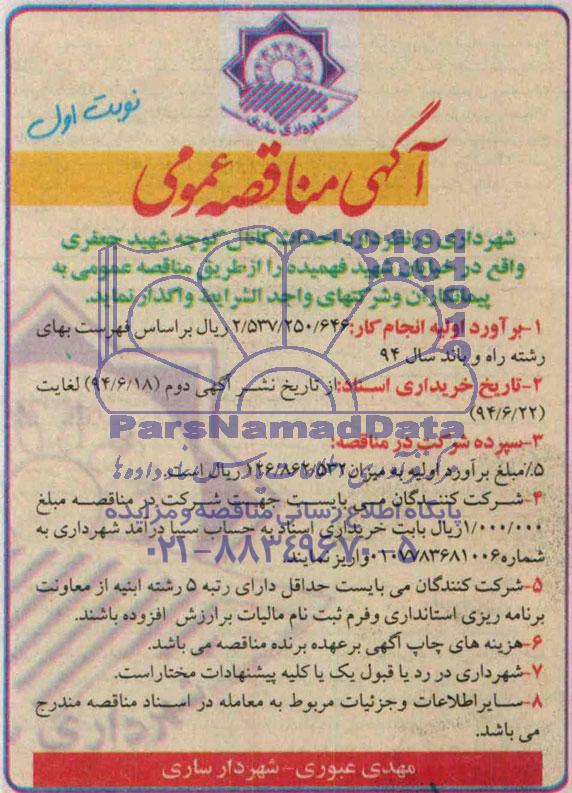 شهرداری ساری
نوبت اول
آگهی مناقصه عمومی
شهرداری در نظر دارد احداث کانال کوچه شهید جعفری
واقع در خیابان شهید فهمیده را از طریق مناقصه عمومی به
پیمانکاران و شرکتهای واجد الشرایط واگذار نماید.
۱-برآورد اولیه انجام کار: ۲/۵۳۷/۲۵۰/۶۴۶ ریال بر اساس فهرست بهای
رشته راه و باند سال ۹۴
۲-تاریخ خریداری اسناد: از تاریخ نشر آگهی دوم (۹۴/۶/۱۸) لغایت
(۹۴/۶/۲۲)
ParsNamadData
۳-سپرده شرکت در مناقصه:
۵٪ مبلغ برآورد اولیه به میزان ۱۲۶/۸۶۲/۵۳۲ ریال است
۴-شرکت کنندگان می بایست جهت شرکت در مناقصه مبلغ
پایگاه اطلاع رسانی مناقصه و مزایده
۱/۰۰۰/۰۰۰ ریال بابت خریداری اسناد به حساب سیبا درآمد شهرداری به
شماره ۰۱۰۵۷۷۸۳۶۸۱۰۰۶ واریز نمایند.
۰۲۱-۸۸۳۴۹۶۷۰-۵
۵-شرکت کنندگان می بایست حداقل دارای رتبه ۵ رشته ابنیه از معاونت
برنامه ریزی استانداری وفرم ثبت نام مالیات بر ارزش افزوده باشند.
۶-هزینه های چاپ آگهی برعهده برنده مناقصه می باشد.
۷-شهرداری در رد یا قبول یک یا کلیه پیشنهادات مختار است.
۸-سایر اطلاعات وجزئیات مربوط به معامله در اسناد مناقصه مندرج
می باشد.
مهدی عبوری - شهردار ساری